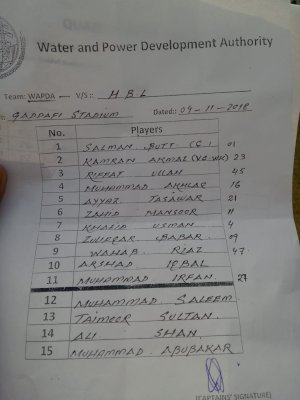 Water and Power Development Authority
Team: WAPDA V/S:: HBL
GADDAFI STADIUM Dated:: 09-11-2018
No. Players
1 SALMAN BUTT (C) 01
2 KAMRAN AKMAL (VC WK) 23
3 RIFFAT ULLAH 45
4 MUHAMMAD AKHLAR 16
5 AYYAZ TASAWAR 21
6 ZAHID MANSOOR 11
7 KHALID USMAN 4
8 ZULIFQAR BABAR 09
9 WAHAB RIAZ 47
10 ARSHAD IQBAL
11 MUHAMMAD IRFAN 27
12 MUHAMMAD SALEEM
13 TAIMOOR SULTAN
14 ALI SHAN
15 MUHAMMAD ABUBAKAR
(CAPTAINS' SIGNATURE)